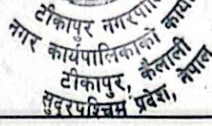 टीकापुर नगरपालि
नगर कार्यपालिकाको कार्य
टीकापुर, कैलाली
सुदूरपश्चिम प्रदेश, नेपाल